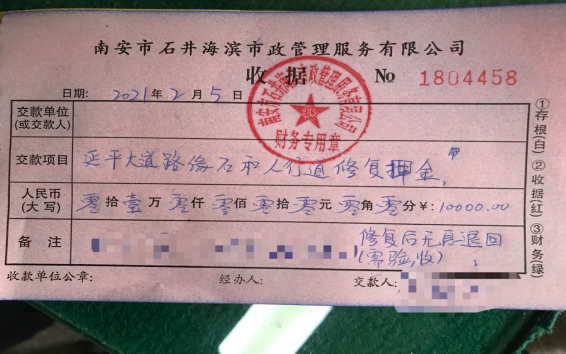 南安市石井海滨市政管理服务有限公司
收据 No 1804458
日期: 2021年2月5日
南安市石井海滨市政管理服务有限公司
财务专用章
交款单位
(或交款人)
交款项目 延平大道路缘石和人行道修复押金,
人民币
(大写) 零拾壹万零仟零佰零拾零元零角零分¥: 10000.00
备注 修复后无息退回
(需验收)
收款单位公章: 经办人: 交款人:
①存根(白)②收据(红)③财务(绿)